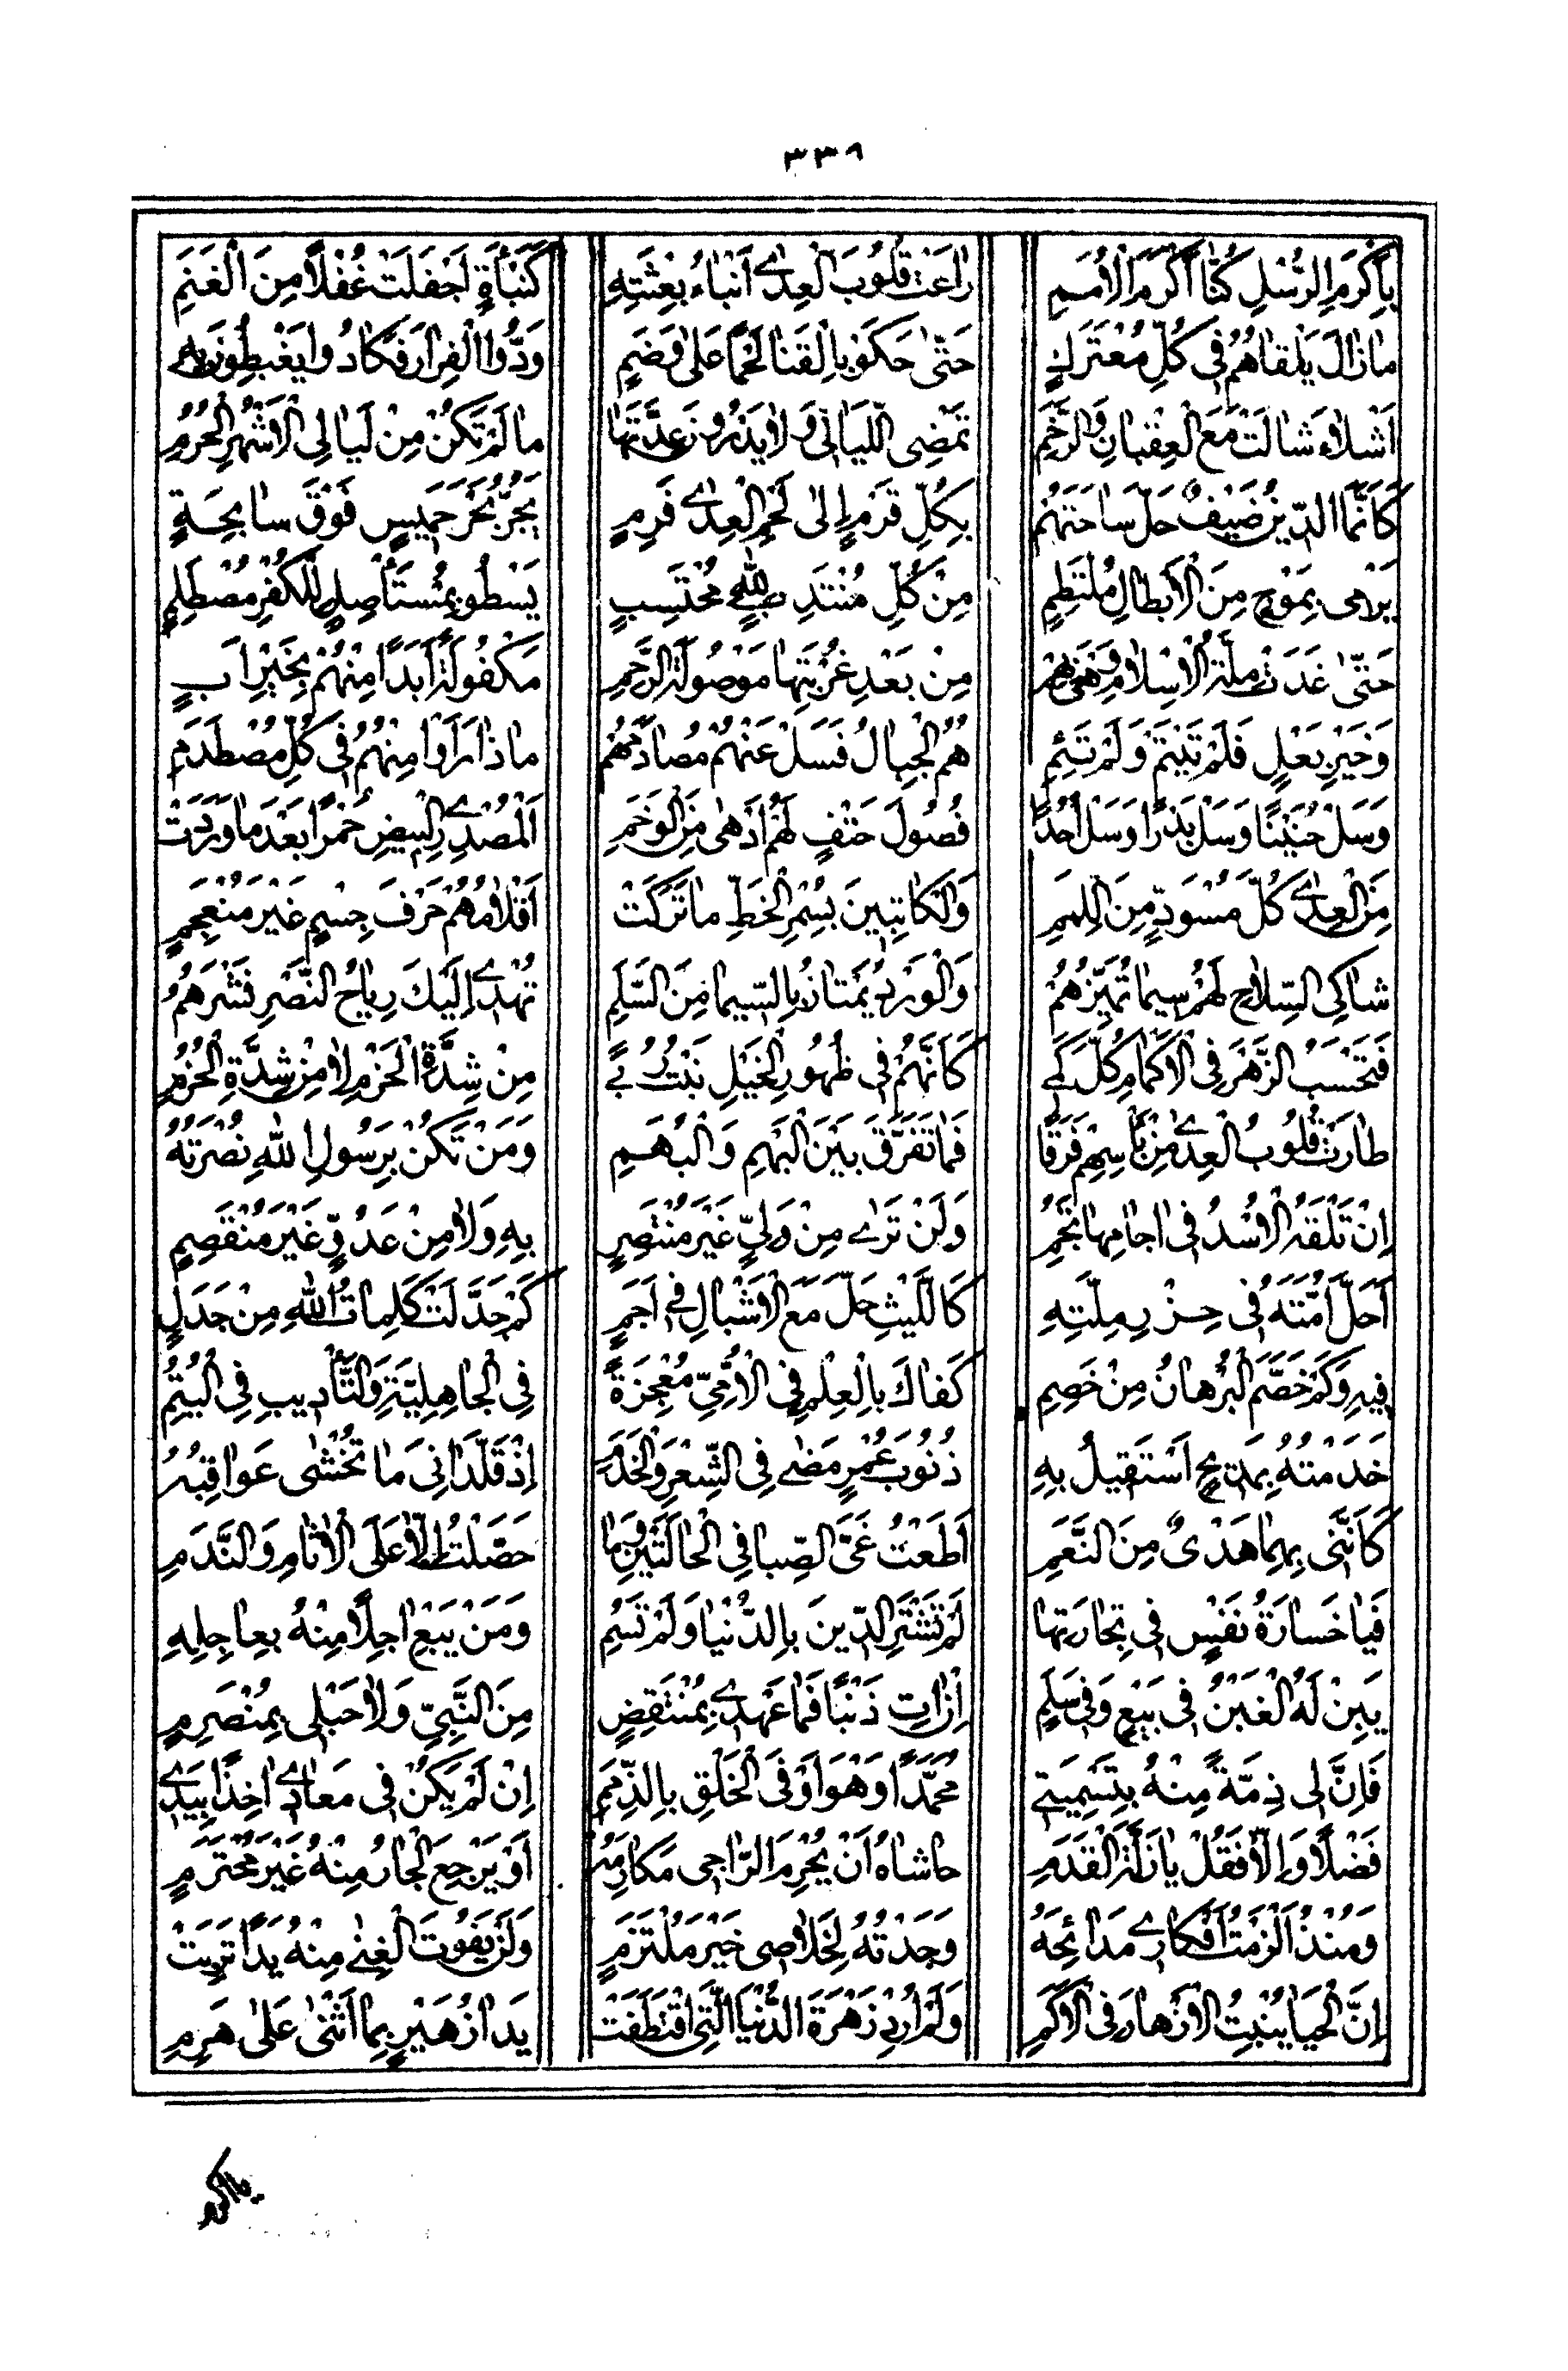 ٣٣٩
بِاَكْرَمِ الرُّسْلِ كُنَّا اَكْرَمَ الْاُمَمِ رَاعَتْ قُلُوبَ الْعِدٰى اَنْبَاءُ بِعْثَتِهِ كَنَبْأَةٍ اَجْفَلَتْ غُفْلًا مِنَ الْغَنَمِ
مَا زَالَ يَلْقَاهُمُ فِى كُلِّ مُعْتَرَكٍ حَتّٰى حَكَوْ بِالْقَنَا لَحْمًا عَلٰى وَضَمٍ وَدُّوا الْفِرَارَ فَكَادُوا يَغْبِطُونَ بِهِ
اَشْلَاءَ شَالَتْ مَعَ الْعِقْبَانِ وَالرَّخَمِ تَمْضِى اللَّيَالِى وَلَا يَدْرُونَ عِدَّتَهَا مَا لَمْ تَكُنْ مِنْ لَيَالِى الْاَشْهُرِ الْحُرُمِ
كَاَنَّمَا الدِّينُ ضَيْفٌ حَلَّ سَاحَتَهُمْ بِكُلِّ قَرْمٍ اِلٰى لَحْمِ الْعِدٰى قَرِمٍ يَجُرُّ بَحْرَ خَمِيسٍ فَوْقَ سَابِحَةٍ
يَرْمِى بِمَوْجٍ مِنَ الْاَبْطَالِ مُلْتَطِمٍ مِنْ كُلِّ مُنْتَدِبٍ لِلّٰهِ مُحْتَسِبٍ يَسْطُو بِمُسْتَأْصِلٍ لِلْكُفْرِ مُصْطَلِمٍ
حَتّٰى غَدَتْ مِلَّةُ الْاِسْلَامِ وَهْىَ بِهِمْ مِنْ بَعْدِ غُرْبَتِهَا مَوْصُولَةَ الرَّحِمِ مَكْفُولَةً اَبَدًا مِنْهُمْ بِخَيْرِ اَبٍ
وَخَيْرِ بَعْلٍ فَلَمْ تَيْتَمْ وَلَمْ تَئِمِ هُمُ الْجِبَالُ فَسَلْ عَنْهُمْ مُصَادِمَهُمْ مَاذَا رَأَوْا مِنْهُمُ فِى كُلِّ مُصْطَدَمِ
وَسَلْ حُنَيْنًا وَسَلْ بَدْرًا وَسَلْ اُحُدًا فُصُولَ حَتْفٍ لَهُمْ اَدْهٰى مِنَ الْوَخَمِ اَلْمُصْدِرِى الْبِيضِ حُمْرًا بَعْدَ مَا وَرَدَتْ
مِنَ الْعِدٰى كُلَّ مُسْوَدٍّ مِنَ اللِّمَمِ وَالْكَاتِبِينَ بِسُمْرِ الْخَطِّ مَا تَرَكَتْ اَقْلَامُهُمْ حَرْفَ جِسْمٍ غَيْرَ مُنْعَجِمٍ
شَاكِى السِّلَاحِ لَهُمْ سِيمَا تُمَيِّزُهُمْ وَالْوَرْدُ يَمْتَازُ بِالسِّيمَا مِنَ السَّلَمِ تُهْدِى اِلَيْكَ رِيَاحُ النَّصْرِ نَشْرَهُمُ
فَتَحْسَبُ الزَّهْرَ فِى الْاَكْمَامِ كُلَّ كَمِى كَاَنَّهُمْ فِى ظُهُورِ الْخَيْلِ نَبْتُ رُبًى مِنْ شِدَّةِ الْحَزْمِ لَا مِنْ شِدَّةِ الْحُزُمِ
طَارَتْ قُلُوبُ الْعِدٰى مِنْ بَأْسِهِمْ فَرَقًا فَمَا تَفَرَّقَ بَيْنَ الْبَهْمِ وَالْبُهَمِ وَمَنْ تَكُنْ بِرَسُولِ اللّٰهِ نُصْرَتُهُ
اِنْ تَلْقَهُ الْاُسْدُ فِى اٰجَامِهَا تَجِمُ وَلَنْ تَرٰى مِنْ وَلِيٍّ غَيْرَ مُنْتَصِرٍ بِهِ وَلَا مِنْ عَدُوٍّ غَيْرَ مُنْقَصِمٍ
اَحَلَّ اُمَّتَهُ فِى حِرْزِ مِلَّتِهِ كَاللَّيْثِ حَلَّ مَعَ الْاَشْبَالِ فِى اَجَمٍ كَمْ جَدَّلَتْ كَلِمَاتُ اللّٰهِ مِنْ جَدَلٍ
فِيهِ وَكَمْ خَصَّمَ الْبُرْهَانُ مِنْ خَصِمِ كَفَاكَ بِالْعِلْمِ فِى الْاُمِّيِّ مُعْجِزَةً فِى الْجَاهِلِيَّةِ وَالتَّأْدِيبِ فِى الْيُتُمِ
خَدَمْتُهُ بِمَدِيحٍ اَسْتَقِيلُ بِهِ ذُنُوبَ عُمْرٍ مَضٰى فِى الشِّعْرِ وَالْخِدَمِ اِذْ قَلَّدَانِىَ مَا تُخْشٰى عَوَاقِبُهُ
كَاَنَّنِى بِهِمَا هَدْىٌ مِنَ النَّعَمِ اَطَعْتُ غَىَّ الصِّبَا فِى الْحَالَتَيْنِ وَمَا حَصَّلْتُ اِلَّا عَلَى الْاٰثَامِ وَالنَّدَمِ
فَيَا خَسَارَةَ نَفْسٍ فِى تِجَارَتِهَا لَمْ تَشْتَرِ الدِّينَ بِالدُّنْيَا وَلَمْ تَسُمِ وَمَنْ يَبِعْ اٰجِلًا مِنْهُ بِعَاجِلِهِ
يَبِنْ لَهُ الْغَبْنُ فِى بَيْعٍ وَفِى سَلَمِ اِنْ اٰتِ ذَنْبًا فَمَا عَهْدِى بِمُنْتَقِضٍ مِنَ النَّبِيِّ وَلَا حَبْلِى بِمُنْصَرِمٍ
فَاِنَّ لِى ذِمَّةً مِنْهُ بِتَسْمِيَتِى مُحَمَّدًا وَهُوَ اَوْفَى الْخَلْقِ بِالذِّمَمِ اِنْ لَمْ يَكُنْ فِى مَعَادِى اٰخِذًا بِيَدِى
فَضْلًا وَاِلَّا فَقُلْ يَا زَلَّةَ الْقَدَمِ حَاشَاهُ اَنْ يُحْرِمَ الرَّاجِى مَكَارِمَهُ اَوْ يَرْجِعَ الْجَارُ مِنْهُ غَيْرَ مُحْتَرَمٍ
وَمُنْذُ اَلْزَمْتُ اَفْكَارِى مَدَائِحَهُ وَجَدْتُهُ لِخَلَاصِى خَيْرَ مُلْتَزَمٍ وَلَنْ يَفُوتَ الْغِنٰى مِنْهُ يَدًا تَرِبَتْ
اِنَّ الْحَيَا يُنْبِتُ الْاَزْهَارَ فِى الْاَكَمِ وَلَمْ اُرِدْ زَهْرَةَ الدُّنْيَا الَّتِى اقْتَطَفَتْ يَدَا زُهَيْرٍ بِمَا اَثْنٰى عَلٰى هَرِمِ
يا اكرم